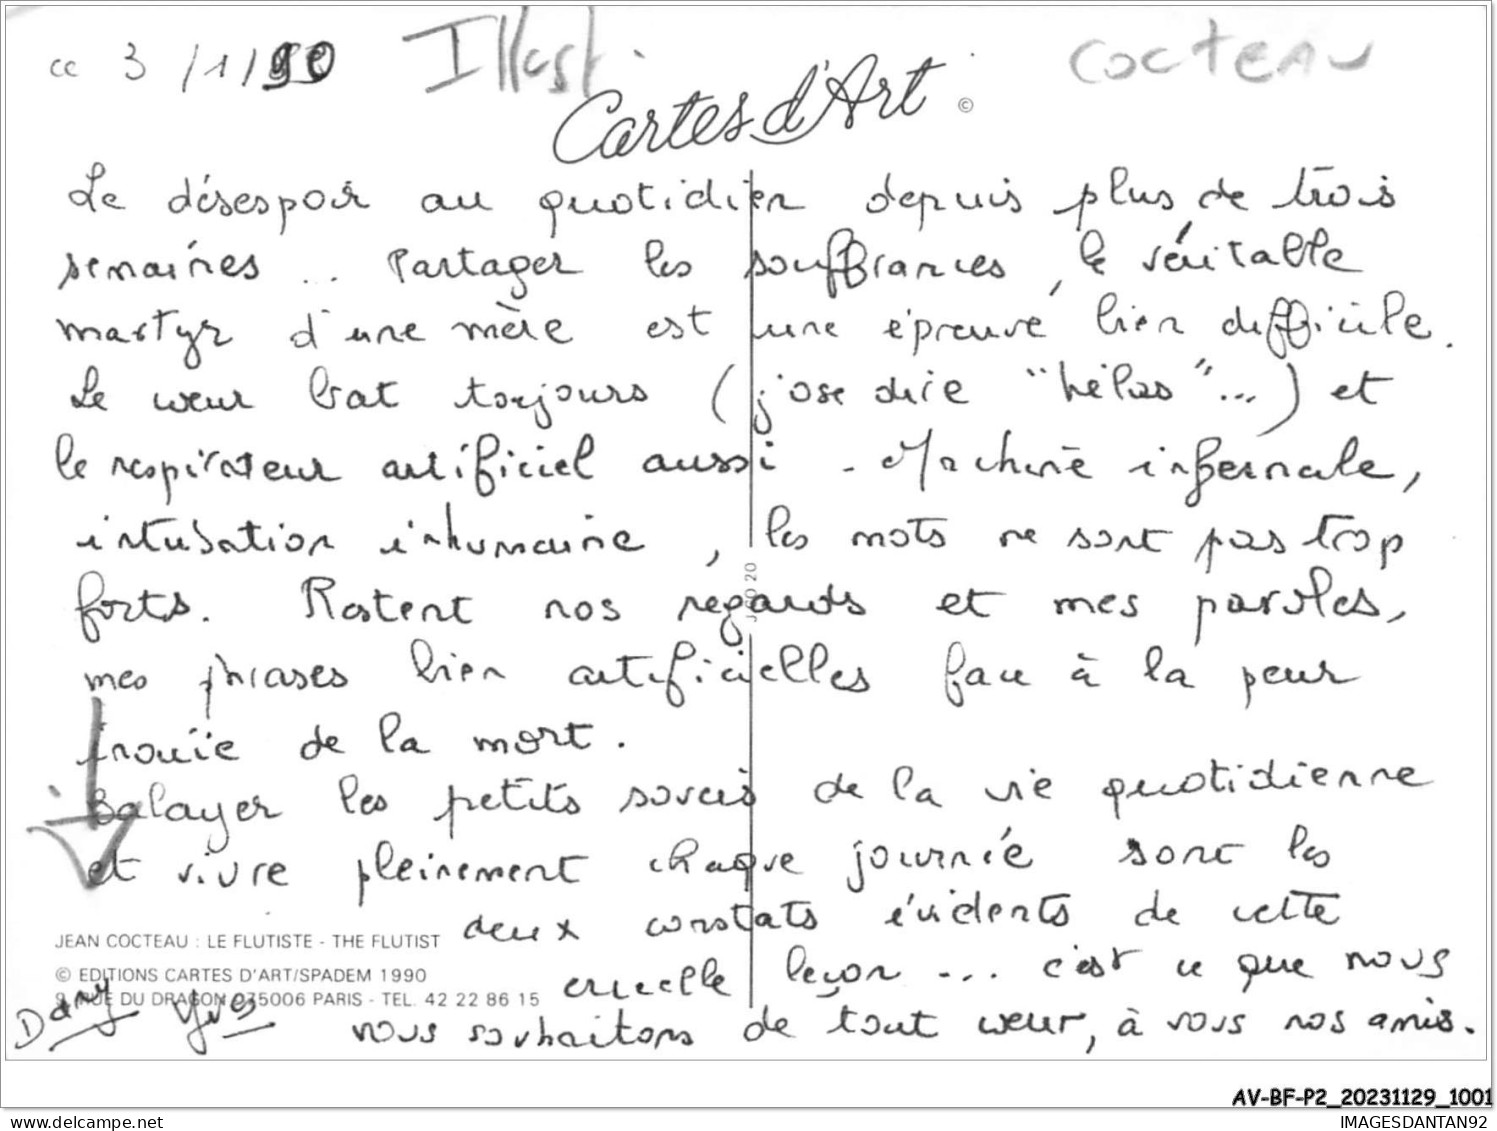 ce 3/1/90 Illust. Cocteau
Cartes d'Art ©
Le désespoir au quotidien depuis plus de trois
semaines ... Partager les souffrances, le véritable
martyr d'une mère est une épreuve bien difficile.
Le cœur bat toujours (j'ose dire "hélas"...) et
le respirateur artificiel aussi - Machine infernale,
intubation inhumaine, les mots ne sont pas trop
forts. Restent nos regards et mes paroles,
mes phrases bien artificielles face à la peur
inouïe de la mort.
Balayer les petits soucis de la vie quotidienne
et vivre pleinement chaque journée sont les
deux constats évidents de cette
cruelle leçon ... c'est ce que nous
vous souhaitons de tout cœur, à vous nos amis.
Dany Yves
JEAN COCTEAU : LE FLUTISTE - THE FLUTIST
© EDITIONS CARTES D'ART/SPADEM 1990
9 RUE DU DRAGON 075006 PARIS - TEL. 42 22 86 15
20
AV-BF-P2_20231129_1001
www.delcampe.net
IMAGESDANTAN92